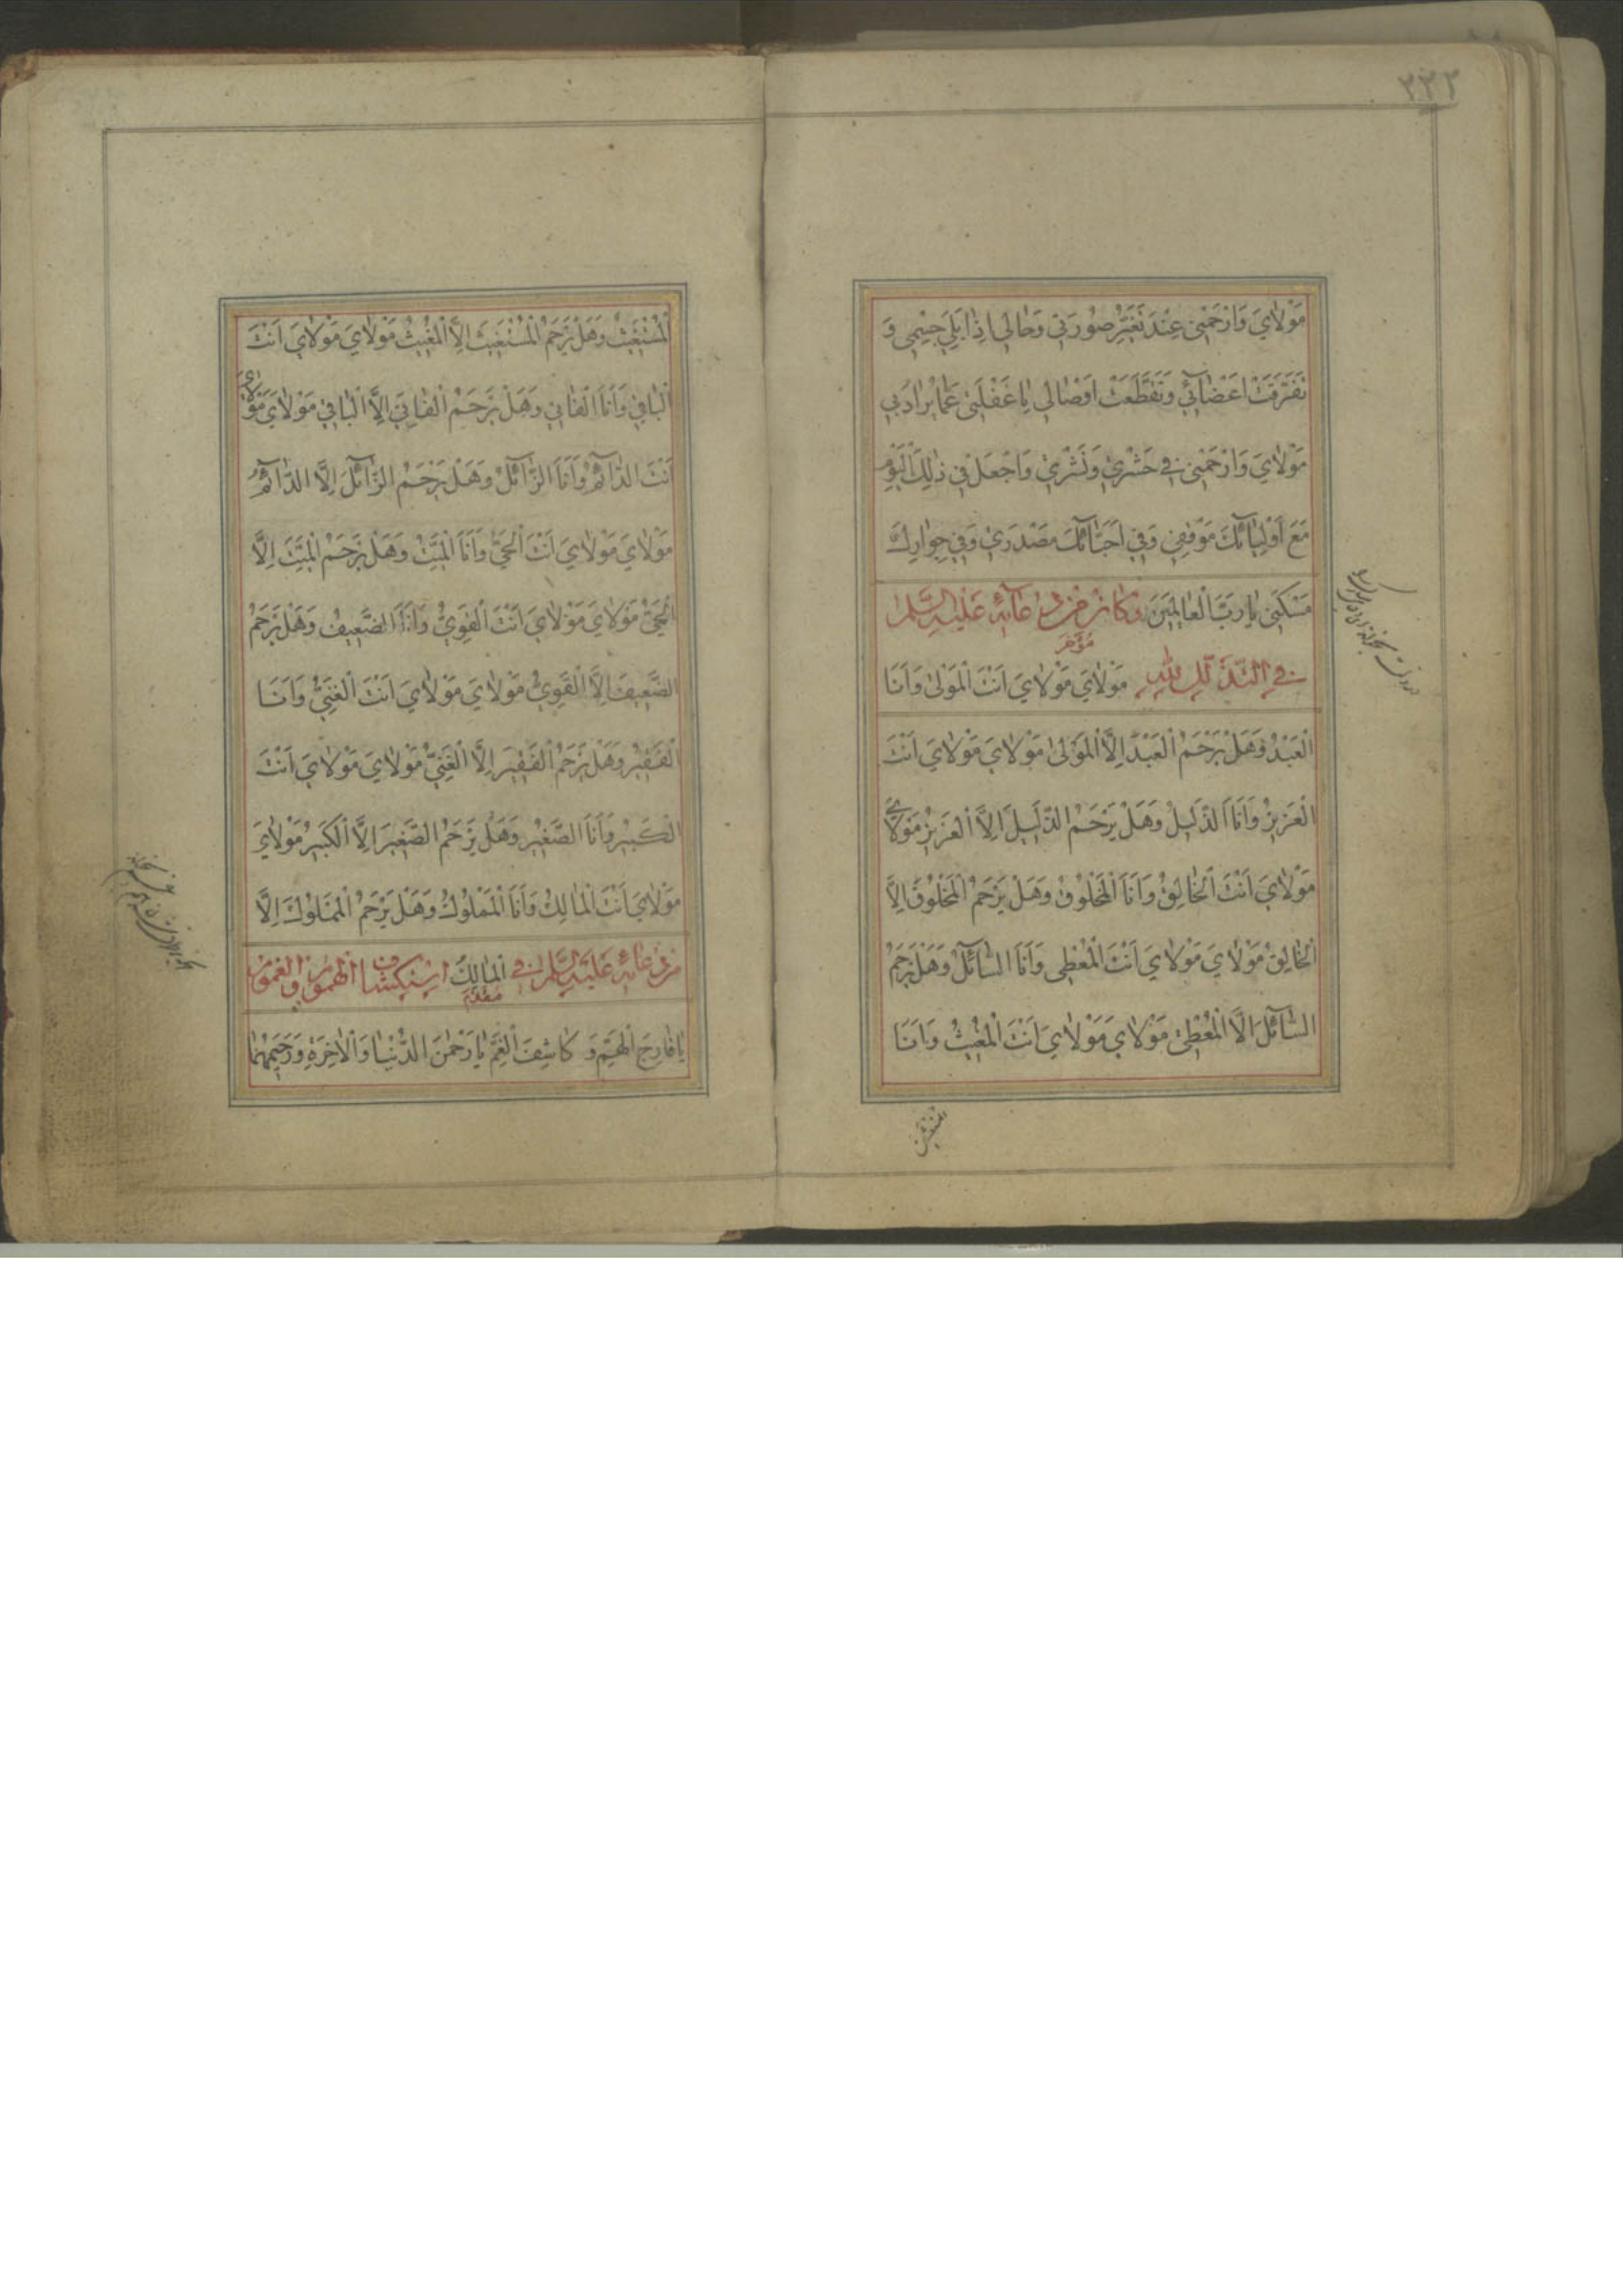 ٢٣٢
مَوْلَايَ وَارْحَمْنِي عِنْدَ تَغَيُّرِ صُورَتِي وَحَالِي اِذَا بَلِيَ جِسْمِي وَ
تَفَرَّقَتْ اَعْضَائِي وَتَقَطَّعَتْ اَوْصَالِي يَا غَفْلَتِي عَمَّا يُرَادُ بِي
مَوْلَايَ وَارْحَمْنِي فِي حَشْرِي وَنَشْرِي وَاجْعَلْ فِي ذٰلِكَ الْيَوْمِ
مَعَ اَوْلِيَائِكَ مَوْقِفِي وَفِي اَحِبَّائِكَ مَصْدَرِي وَفِي جِوَارِكَ
مَسْكَنِي يَا رَبَّ الْعَالَمِينَ وَكَانَ مِنْ دُعَائِهِ عَلَيْهِ السَّلَام
فِي التَّذَلُّلِ لِلّٰهِ مُؤَخَّر مَوْلَايَ مَوْلَايَ اَنْتَ الْمَوْلٰى وَاَنَا
الْعَبْدُ وَهَلْ يَرْحَمُ الْعَبْدَ اِلَّا الْمَوْلٰى مَوْلَايَ مَوْلَايَ اَنْتَ
الْعَزِيزُ وَاَنَا الذَّلِيلُ وَهَلْ يَرْحَمُ الذَّلِيلَ اِلَّا الْعَزِيزُ مَوْلَايَ
مَوْلَايَ اَنْتَ الْخَالِقُ وَاَنَا الْمَخْلُوقُ وَهَلْ يَرْحَمُ الْمَخْلُوقَ اِلَّا
الْخَالِقُ مَوْلَايَ مَوْلَايَ اَنْتَ الْمُعْطِي وَاَنَا السَّائِلُ وَهَلْ يَرْحَمُ
السَّائِلَ اِلَّا الْمُعْطِي مَوْلَايَ مَوْلَايَ اَنْتَ الْمُغِيثُ وَاَنَا
الْمُسْتَغِيثُ وَهَلْ يَرْحَمُ الْمُسْتَغِيثَ اِلَّا الْمُغِيثُ مَوْلَايَ مَوْلَايَ اَنْتَ
الْبَاقِي وَاَنَا الْفَانِي وَهَلْ يَرْحَمُ الْفَانِيَ اِلَّا الْبَاقِي مَوْلَايَ مَوْلَايَ
اَنْتَ الدَّائِمُ وَاَنَا الزَّائِلُ وَهَلْ يَرْحَمُ الزَّائِلَ اِلَّا الدَّائِمُ
مَوْلَايَ مَوْلَايَ اَنْتَ الْحَيُّ وَاَنَا الْمَيِّتُ وَهَلْ يَرْحَمُ الْمَيِّتَ اِلَّا
الْحَيُّ مَوْلَايَ مَوْلَايَ اَنْتَ الْقَوِيُّ وَاَنَا الضَّعِيفُ وَهَلْ يَرْحَمُ
الضَّعِيفَ اِلَّا الْقَوِيُّ مَوْلَايَ مَوْلَايَ اَنْتَ الْغَنِيُّ وَاَنَا
الْفَقِيرُ وَهَلْ يَرْحَمُ الْفَقِيرَ اِلَّا الْغَنِيُّ مَوْلَايَ مَوْلَايَ اَنْتَ
الْكَبِيرُ وَاَنَا الصَّغِيرُ وَهَلْ يَرْحَمُ الصَّغِيرَ اِلَّا الْكَبِيرُ مَوْلَايَ
مَوْلَايَ اَنْتَ الْمَالِكُ وَاَنَا الْمَمْلُوكُ وَهَلْ يَرْحَمُ الْمَمْلُوكَ اِلَّا
مِنْ دُعَائِهِ عَلَيْهِ السَّلَام فِي الْمَالِكُ مُقَدَّم اسْتِكْشَافِ الْهُمُومِ وَالْغُمُومِ
يَا فَارِجَ الْهَمِّ وَ كَاشِفَ الْغَمِّ يَا رَحْمٰنَ الدُّنْيَا وَالْاٰخِرَةِ وَرَحِيمَهُمَا